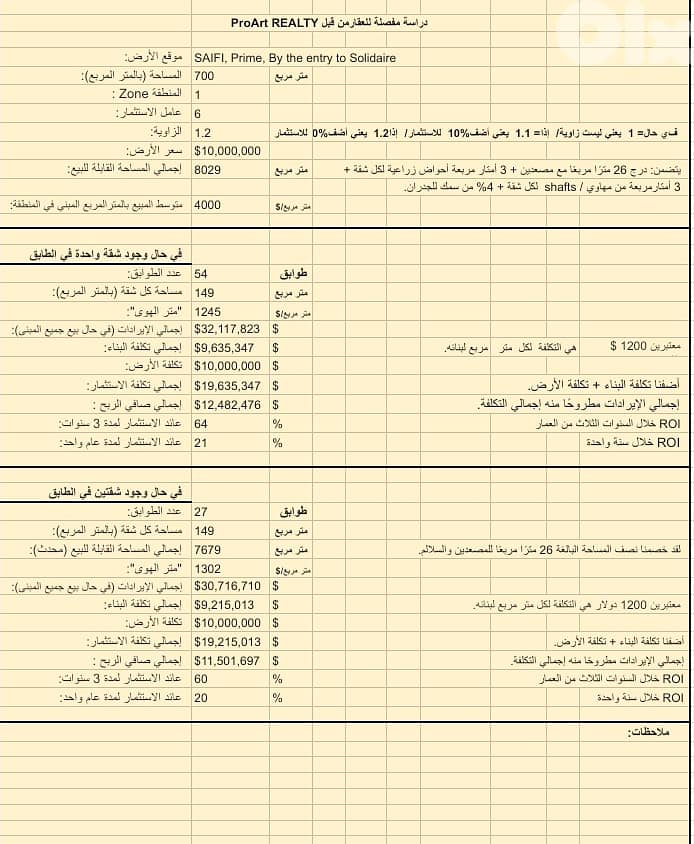 دراسة مفصلة للعقار من قبل ProArt REALTY
OLX
موقع الأرض: SAIFI, Prime, By the entry to Solidaire
المساحة (بالمتر المربع): 700 متر مربع
المنطقة Zone : 1
عامل الاستثمار: 6
الزاوية: 1.2 في حال= 1 يعني ليست زاوية/ إذا= 1.1 يعني أضف 10% للاستثمار/ إذا 1.2 يعني أضف 0% للاستثمار
سعر الأرض: $10,000,000
إجمالي المساحة القابلة للبيع: 8029 متر مربع يتضمن: درج 26 مترًا مربعًا مع مصعدين + 3 أمتار مربعة أحواض زراعية لكل شقة +
3 أمتار مربعة من مهاوي / shafts لكل شقة + 4% من سمك للجدران.
متوسط المبيع بالمتر المربع المبني في المنطقة: 4000 متر مربع/$
في حال وجود شقة واحدة في الطابق
عدد الطوابق: 54 طوابق
مساحة كل شقة (بالمتر المربع): 149 متر مربع
"متر الهوى": 1245 متر مربع/$
إجمالي الإيرادات (في حال بيع جميع المبنى): $32,117,823 $
إجمالي تكلفة البناء: $9,635,347 $ معتبرين 1200 $ هي التكلفة لكل متر مربع لبنائه.
تكلفة الأرض: $10,000,000 $
إجمالي تكلفة الاستثمار: $19,635,347 $ أضفنا تكلفة البناء + تكلفة الأرض.
إجمالي صافي الربح : $12,482,476 $ إجمالي الإيرادات مطروحًا منه إجمالي التكلفة.
عائد الاستثمار لمدة 3 سنوات: 64 % ROI خلال السنوات الثلاث من العمار
عائد الاستثمار لمدة عام واحد: 21 % ROI خلال سنة واحدة
في حال وجود شقتين في الطابق
عدد الطوابق: 27 طوابق
مساحة كل شقة (بالمتر المربع): 149 متر مربع
إجمالي المساحة القابلة للبيع (محدث): 7679 متر مربع لقد خصمنا نصف المساحة البالغة 26 مترًا مربعًا للمصعدين والسلالم.
"متر الهوى": 1302 متر مربع/$
إجمالي الإيرادات (في حال بيع جميع المبنى): $30,716,710 $
إجمالي تكلفة البناء: $9,215,013 $ معتبرين 1200 دولار هي التكلفة لكل متر مربع لبنائه.
تكلفة الأرض: $10,000,000 $
إجمالي تكلفة الاستثمار: $19,215,013 $ أضفنا تكلفة البناء + تكلفة الأرض.
إجمالي صافي الربح : $11,501,697 $ إجمالي الإيرادات مطروحًا منه إجمالي التكلفة.
عائد الاستثمار لمدة 3 سنوات: 60 % ROI خلال السنوات الثلاث من العمار
عائد الاستثمار لمدة عام واحد: 20 % ROI خلال سنة واحدة
ملاحظات: